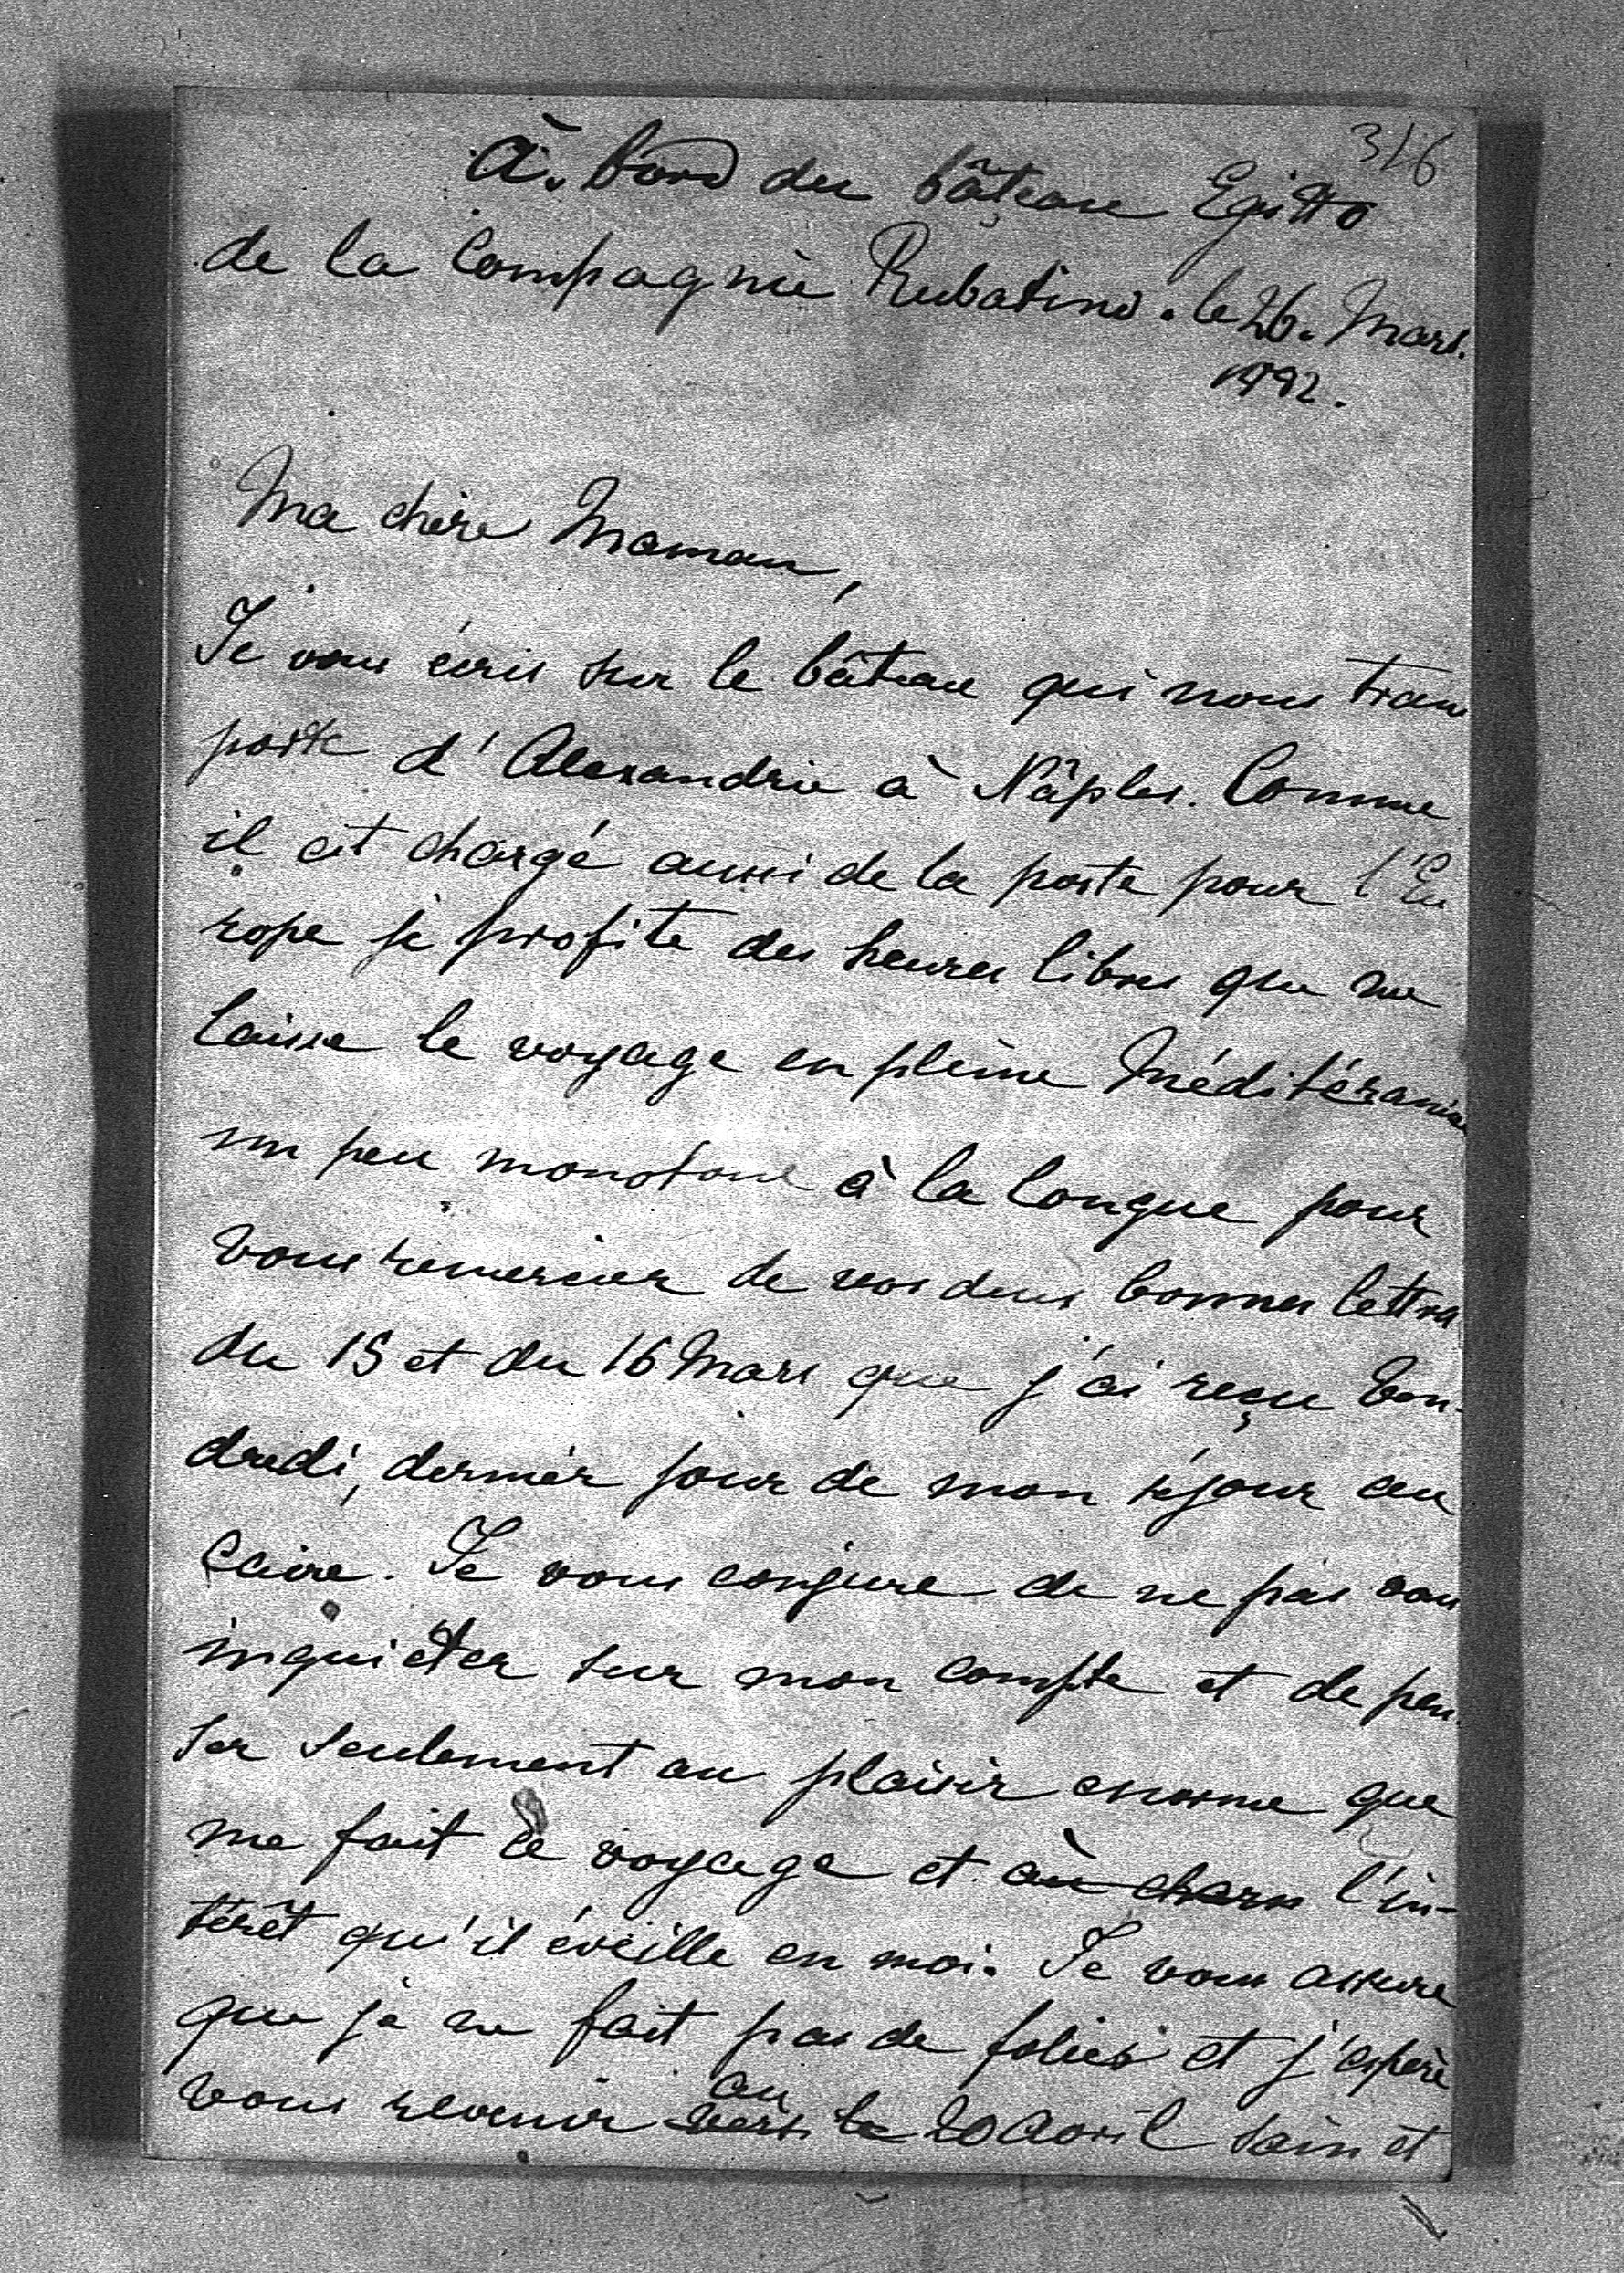 316
à bord du bâteau Egitto
de la Compagnie Rubatino. le 26. Mars.
1892.
Ma chère Maman,
Je vous écris sur le bâteau qui nous trans
porte d'Alexandrie à Nâples. Comme
il est chargé aussi de la poste pour l'Eu
rope je profite des heures libres que me
laisse le voyage en pleine Méditéranée
un peu monotone à la longue pour
vous remercier de vos deux bonnes lettres
du 15 et du 16 Mars que j'ai reçu Ven-
dredi, dernier jour de mon séjour au
Caire. Je vous conjure de ne pas vous
inquièter sur mon compte et de pen
ser seulement au plaisir enorme que
me fait ce voyage et au charm l'in-
térêt qu'il éveille en moi. Je vous assure
que je ne fait pas de folies et j'espère
au
vous revenir vers le 20 Avril sain et